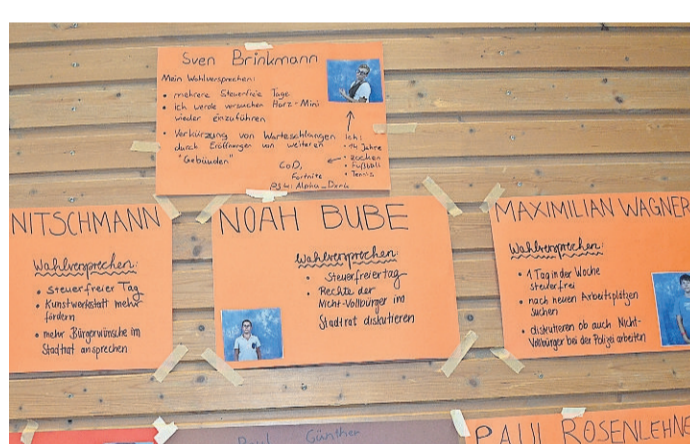 Sven Brinkmann
Mein Wahlversprechen:
• mehrere Steuerfreie Tage
• ich werde versuchen Harz-Mini
wieder einzuführen
• Verkürzung von Warteschlangen
durch Eröffnungen von weiteren
"Gebäuden"
Ich:
• 14 Jahre
• zocken
• Fußball
• Tennis
CoD,
Fortnite
NITSCHMANN
Wahlversprechen:
• steuerfreier Tag
• Kunstwerkstatt mehr
fördern
• mehr Bürgerwünsche im
Stadtrat ansprechen
NOAH BUBE
Wahlversprechen:
• Steuerfreiertag
• Rechte der
Nicht-Vollbürger im
Stadtrat diskutieren
MAXIMILIAN WAGNER
Wahlversprechen:
• 1 Tag in der Woche
steuerfrei
• nach neuen Arbeitsplätzen
suchen
• diskutieren ob auch Nicht-
Vollbürger bei der Polizei arbeiten
Paul Günther
PAUL ROSENLEHNE